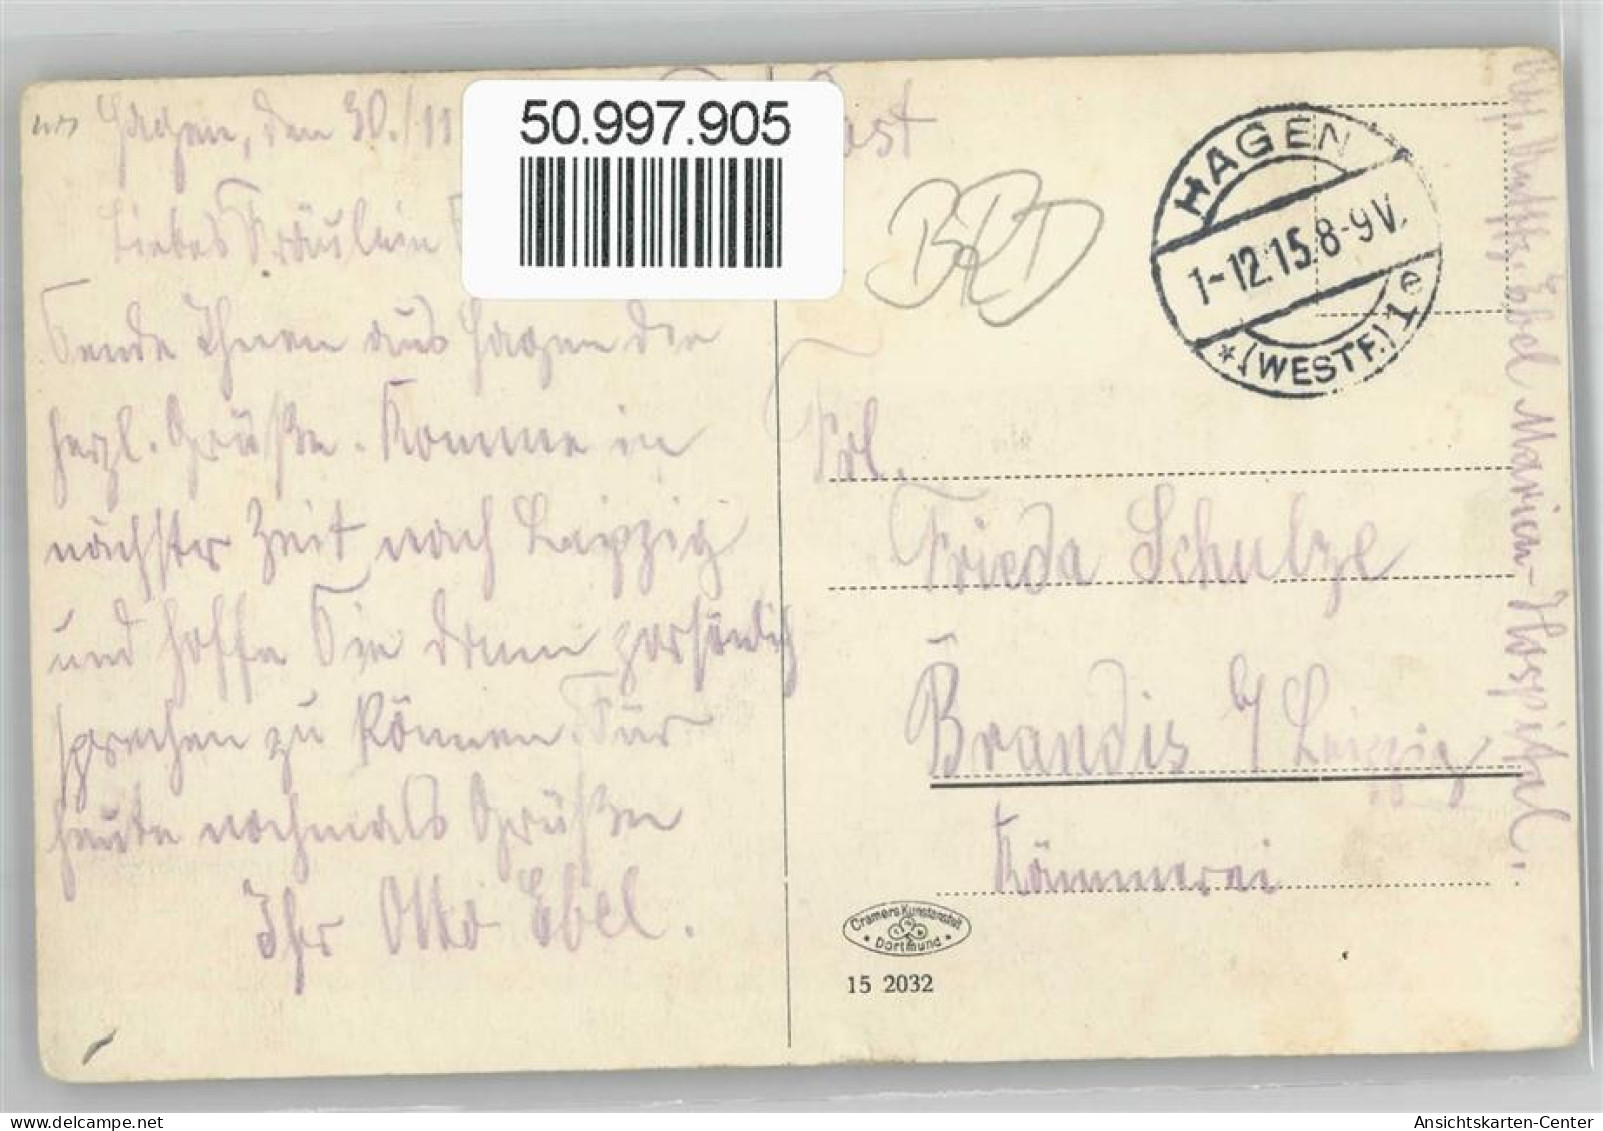 Hagen, den 30./11
50.997.905
ost
Liebes Fräulein
Sende Ihnen aus Hagen die
herzl. Grüße. Komme in
nächster Zeit nach Leipzig
und hoffe Sie dann persönlich
sprechen zu können. Für
heute nochmals Grüße
Ihr Otto Ebel.
BRD
HAGEN
1-12.15.8-9V.
*(WESTF.)1e
Frl.
Frieda Schulze
Brandis b/Leipzig
Kämmerei
Ebel Marien-Hospital.
Cramers Kunstanstalt
Dortmund
15 2032
www.delcampe.net
Ansichtskarten-Center